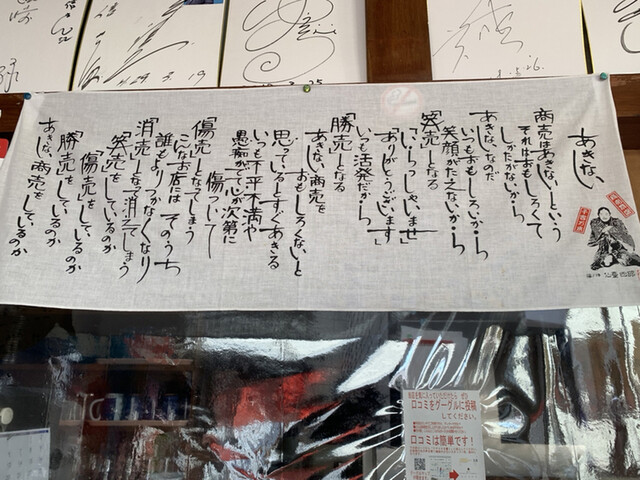 あきない
商売はあきないという
それはおもしろくて
しかたがないから
あきないなのだ
いつもおもしろいから
笑顔がたえないから
「笑売」となる
「いらっしゃいませ」
「ありがとうございます」
いつも活発だから
「勝売」となる
あきない商売を
おもしろくないと
思っているとすぐあきる
いつも不平不満や
愚痴がでて心が次第に
傷ついて
「傷売」となってしまう
こんなお店には そのうち
誰もよりつかなくなり
「消売」となって消えてしまう
「笑売」をしているのか
「傷売」をしているのか
「勝売」をしているのか
あきない商売をしているのか
口コミをグーグルに投稿
してください。
口コミは簡単です!